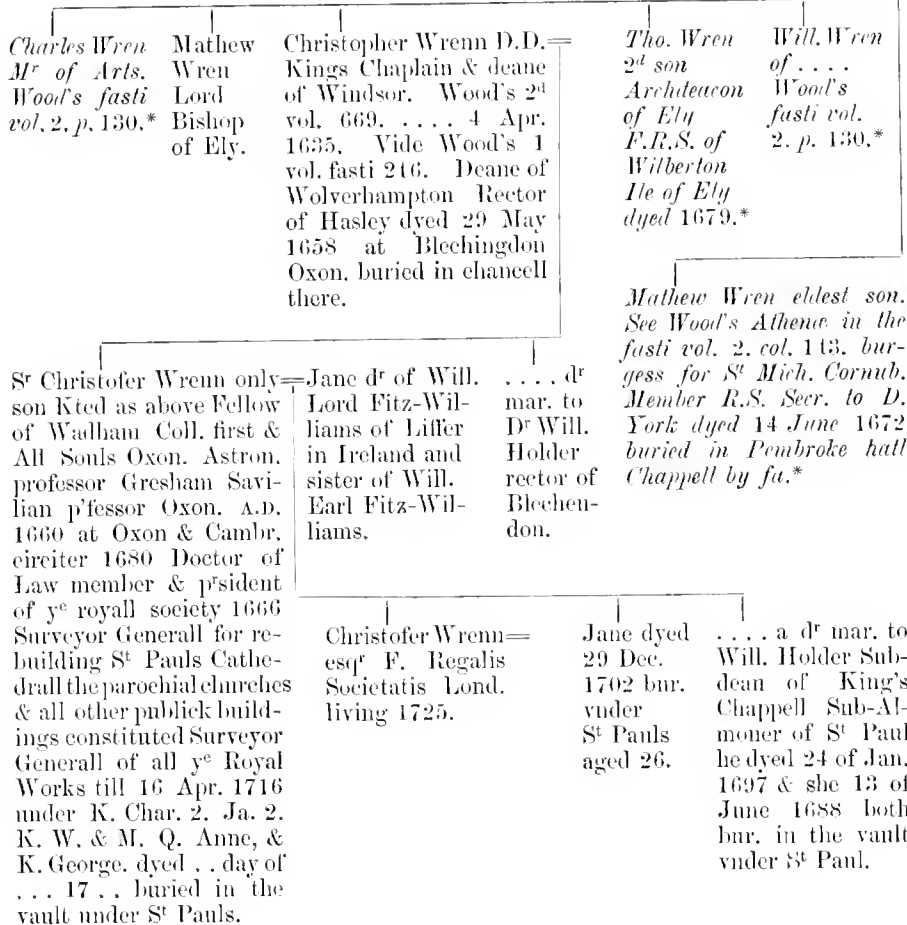 Charles Wren
Mʳ of Arts.
Wood's fasti
vol. 2. p. 130.*
Mathew
Wren
Lord
Bishop
of Ely.
Christopher Wrenn D.D.=
Kings Chaplain & deane
of Windsor. Wood's 2ᵈ
vol. 669. .... 4 Apr.
1635. Vide Wood's 1
vol. fasti 216. Deane of
Wolverhampton Rector
of Hasley dyed 29 May
1658 at Blechingdon
Oxon. buried in chancell
there.
Tho. Wren
2ᵈ son
Architeacon
of Ely
F.R.S. of
Wilberton
Ile of Ely
dyed 1679.*
Will. Wren
of ....
Wood's
fasti vol.
2. p. 130.*
Mathew Wren eldest son.
See Wood's Athenæ in the
fasti vol. 2. col. 143. bur-
gess for Sᵗ Mich. Cornub.
Member R.S. Secr. to D.
York dyed 14 June 1672
buried in Pembroke hall
Chappell by fa.*
Sʳ Christofer Wrenn only=
son Kted as above Fellow
of Wadham Coll. first &
All Souls Oxon. Astron.
professor Gresham Savi-
lian p'fessor Oxon. A.D.
1660 at Oxon & Cambr.
circiter 1680 Doctor of
Law member & pʳsident
of yᵉ royall society 1666
Surveyor Generall for re-
building Sᵗ Pauls Cathe-
drall the parochial churches
& all other publick build-
ings constituted Surveyor
Generall of all yᵉ Royal
Works till 16 Apr. 1716
under K. Char. 2. Ja. 2.
K. W. & M. Q. Anne, &
K. George. dyed .. day of
... 17 .. buried in the
vault under Sᵗ Pauls.
Jane dʳ of Will.
Lord Fitz-Wil-
liams of Liffer
in Ireland and
sister of Will.
Earl Fitz-Wil-
liams.
.... dʳ
mar. to
Dʳ Will.
Holder
rector of
Blechen-
don.
Christofer Wrenn=
esqʳ F. Regalis
Societatis Lond.
living 1725.
Jane dyed
29 Dec.
1702 bur.
vnder
Sᵗ Pauls
aged 26.
.... a dʳ mar. to
Will. Holder Sub-
dean of King's
Chappell Sub-Al-
moner of Sᵗ Paul
he dyed 24 of Jan.
1697 & she 13 of
June 1688 both
bur. in the vault
vnder Sᵗ Paul.